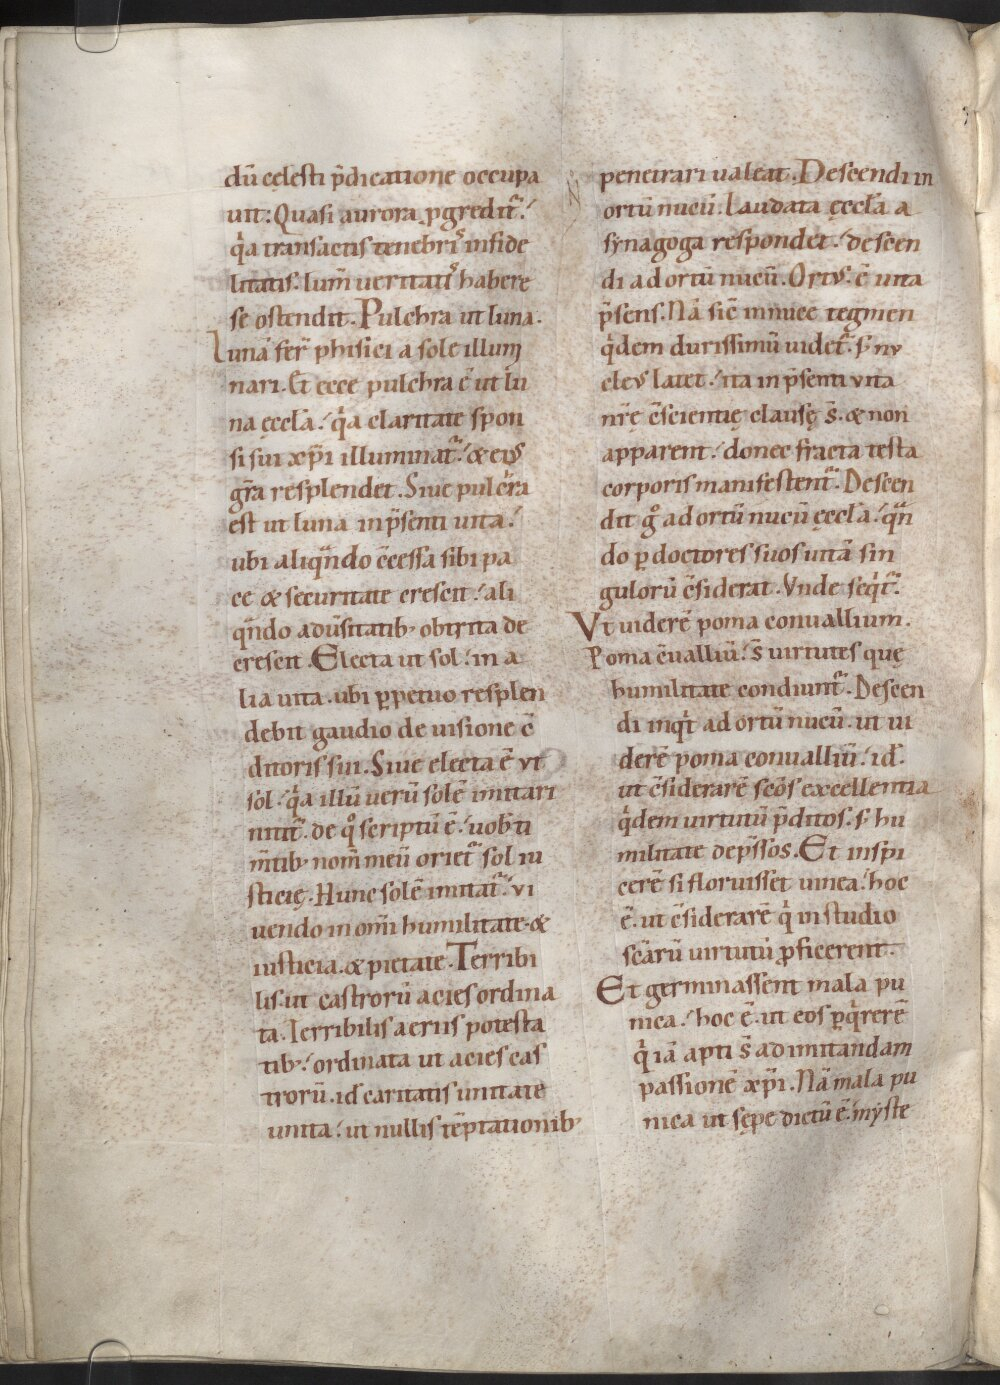 dū celesti p̄dicatione occupa
uit: Quasi aurora ꝓgredit᷑.
q̇a transactis tenebris infide
litatis. lum̄ ueritatis habere
se ostendit. Pulchra ut luna.
Lunā fer̄ phisici a sole illumi
nari. Et ecce pulchra ē ut lu
na ęccła. q̇a claritate spon
si sui xp̄i illuminat᷑. & eius
gr̄a resplendet. Siue pulcra
est ut luna in p̄senti uita.
ubi aliqn̄do c̄cessa sibi pa
ce & securitate crescit. ali
qn̄do adūsitatib; obtrita de
crescit. Electa ut sol. in a
lia uita. ubi ꝑpetuo resplen
debit gaudio de uisione c̄
ditoris sui. Siue electa ē ut
sol. q̇a illū uerū solē imitari
nitit᷑. de q̊ scriptū ē. uob̄ ti
m̄tib; nom̄ meū oriet᷑ sol iu
sticię. Hunc solē imitat᷑. ui
uendo in om̄i humilitate. &
iusticia. & pietate. Terribi
lis. ut castrorū acies ordina
ta. Terribilis aeriis potesta
tib;. ordinata ut acies cas
trorū. id caritatis unitate
unita. ut nullis tēptationib;
penetrari ualeat. Descendi in
ortū nucū. Laudata ęccła a
synagoga respondet. descen
di ad ortū nucū. Ortus. ē uita
p̄sens. Nā sic̄ in nuce tegmen
q̇dem durissimū uidet᷑. s; nu
cleus latet. ita in p̄senti uita
nr̄ę c̄scientię clausę s̄. & non
apparent. donec fracta testa
corporis manifestent᷑. Descen
dit g̊ ad ortū nucū ęccła. qn̄
do ꝑ doctores suos uitā sin
gulorū c̄siderat. Vnde seq̇t᷑.
Vt uiderē poma conuallium.
Poma c̄ualliū. s̄ uirtutes quę
humilitate condiunt᷑. Descen
di inqt ad ortū nucū. ut ui
derē poma conualliū. id.
ut c̄siderarē sc̄os excellentia
q̇dem uirtutū p̄ditos. s; hu
militate dep̄ssos. Et inspi
cerē si floruisset uinea. hoc
ē. ut c̄siderarē q̇ in studio
sc̄arū uirtutū ꝓficerent.
Et germinassent mala pu
nica. hoc ē. ut eos ꝑq̇rerē
q̇ iā apti s̄ ad imitandam
passionē xp̄i. Nā mala pu
nica ut sępe dictū ē. myste